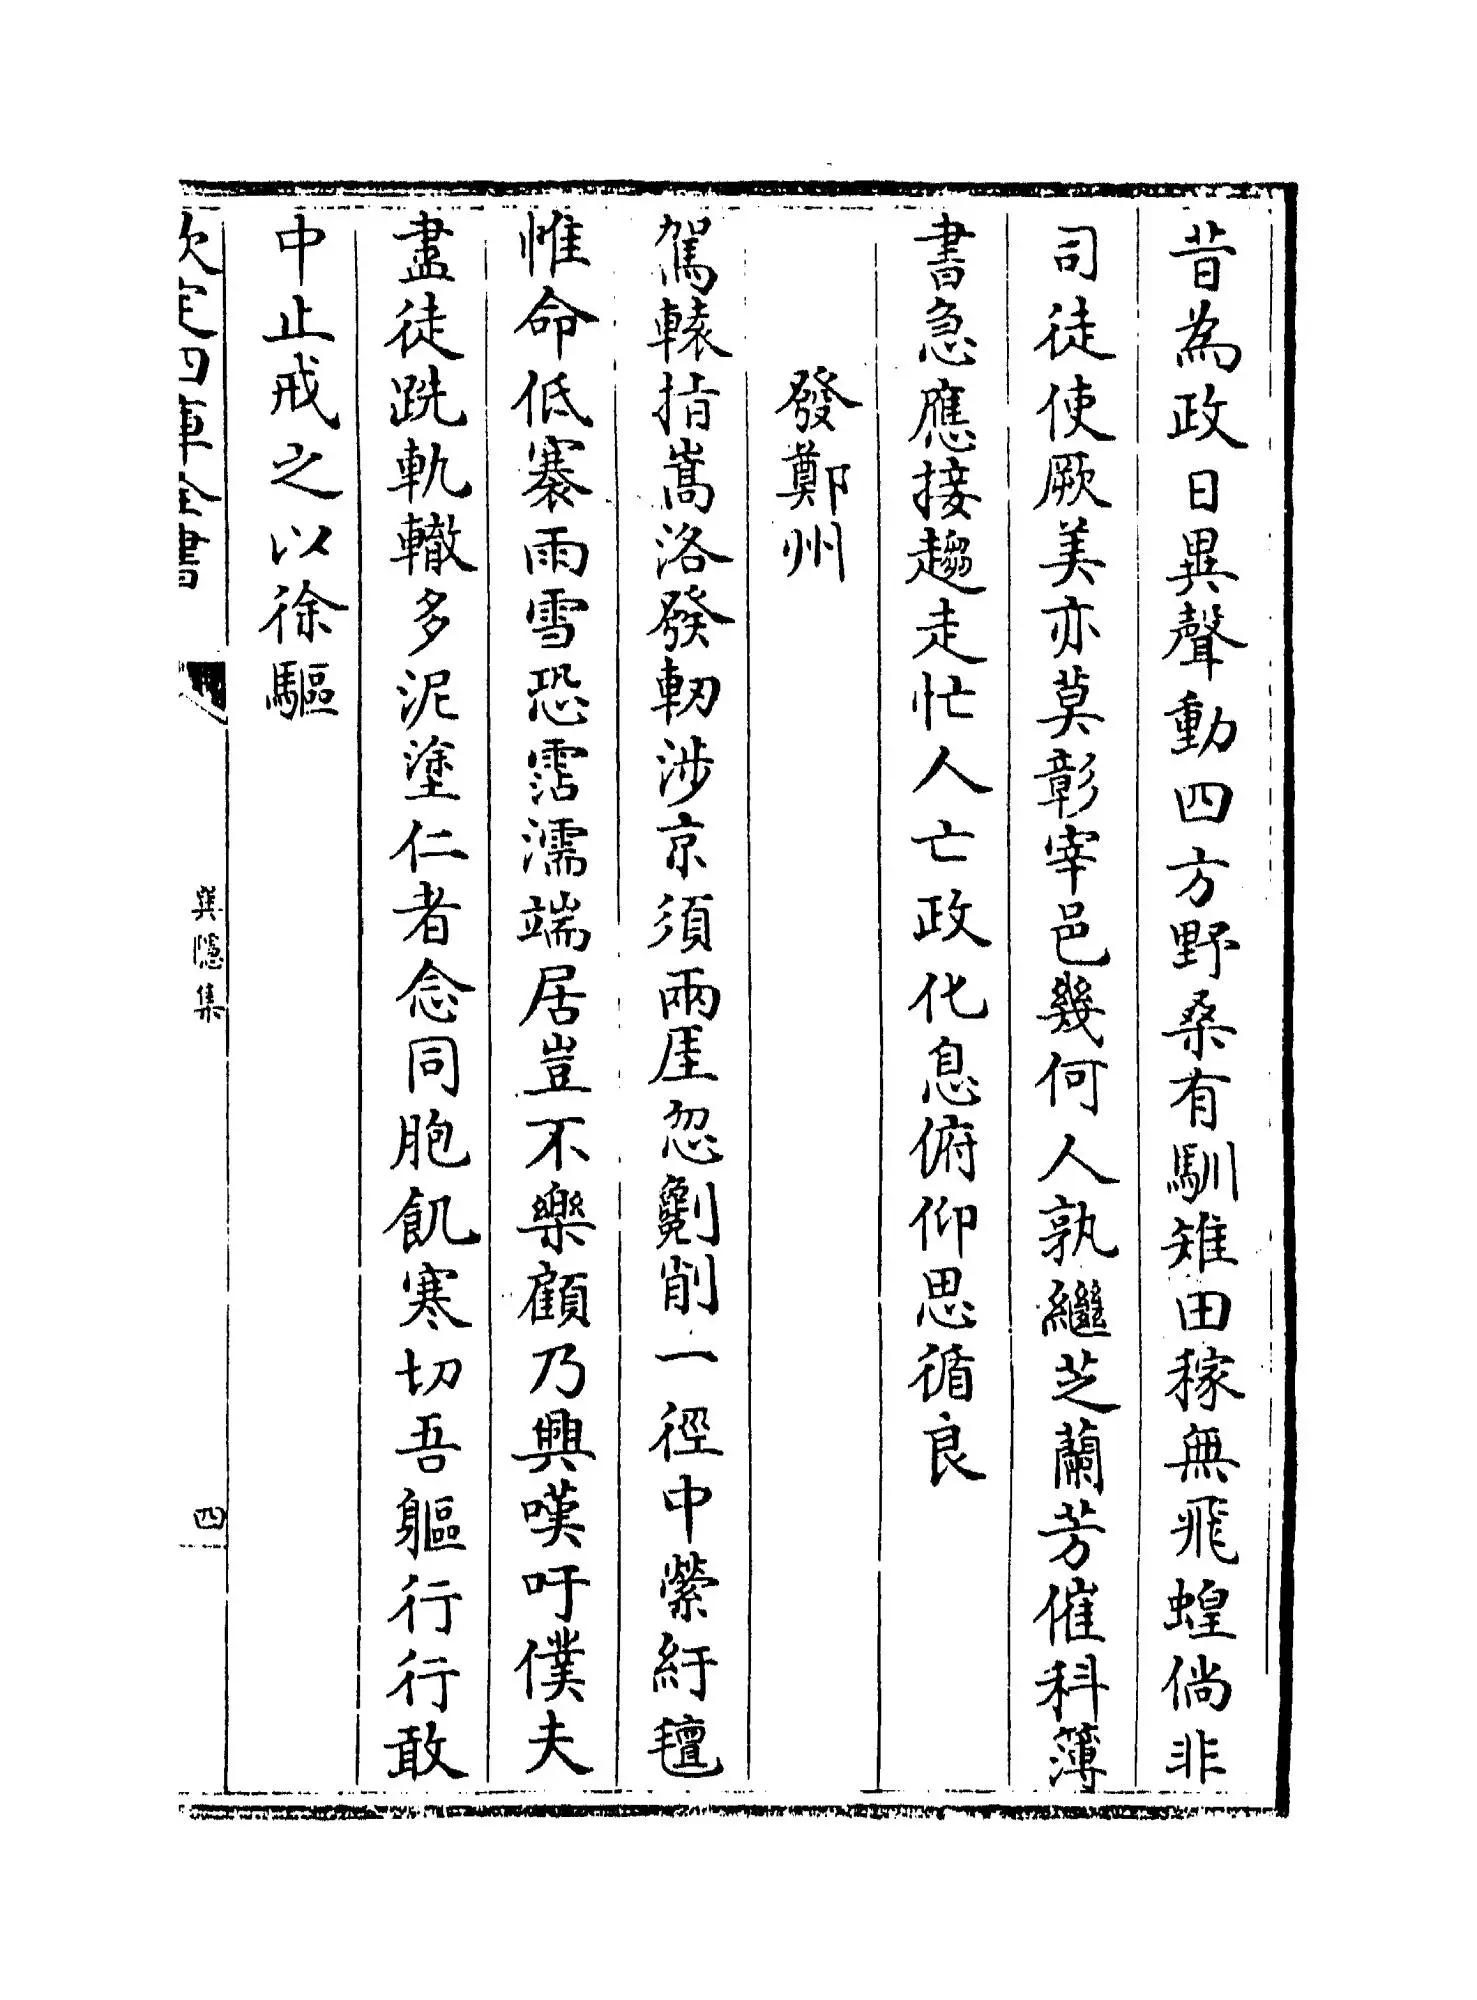 昔為政日異聲動四方野桑有馴雉田稼無飛蝗倘非
司徒使厥美亦莫彰宰邑幾何人孰繼芝蘭芳催科簿
書急應接趨走忙人亡政化息俯仰思循良
發鄭州
駕轅指嵩洛發軔涉京須兩厓忽劖削一徑中縈紆氊
惟命低褰雨雪恐霑濡端居豈不樂顧乃興嘆吁僕夫
盡徒跣軌轍多泥塗仁者念同胞飢寒切吾軀行行敢
中止戒之以徐驅
欽定四庫全書
巽隱集
四